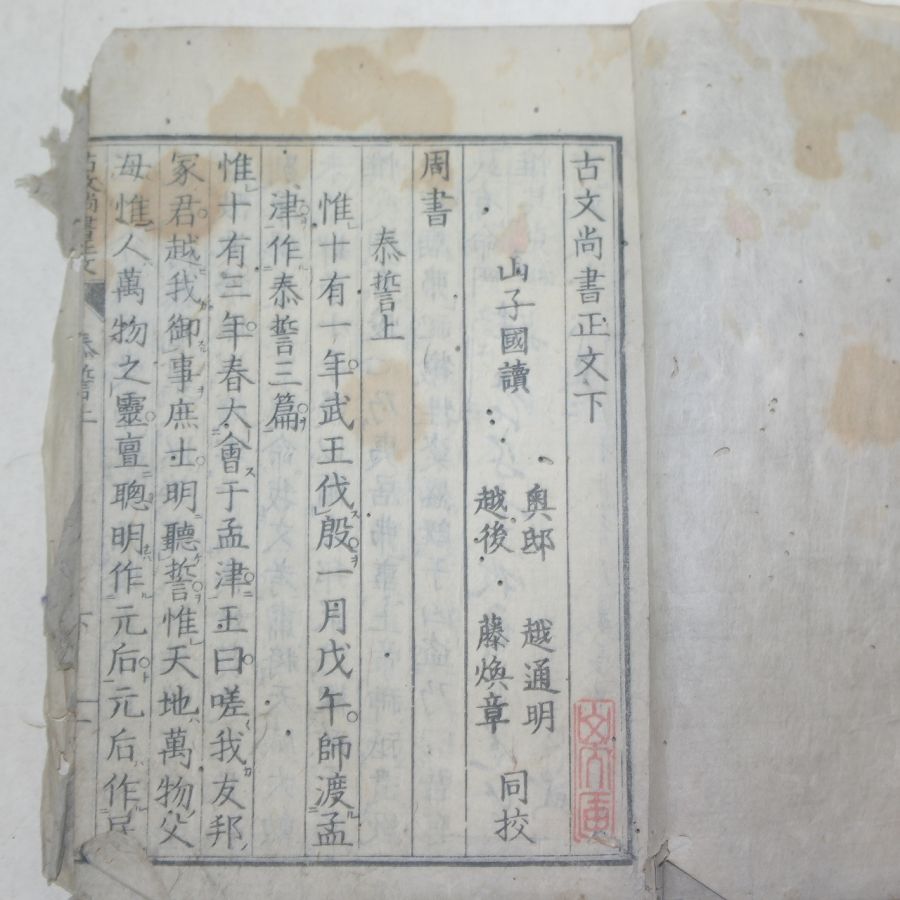 古文尚書正文下
山子國讀
奧邸 越通明
越後 藤煥章
同挍
周書
泰誓上
惟十有一年武王伐殷一月戊午師渡孟
津作泰誓三篇
惟十有三年春大會于孟津王曰嗟我友邦
冢君越我御事庶士明聽誓惟天地萬物父
母惟人萬物之靈亶聰明作元后元后作民
古文尚書正文
泰誓上